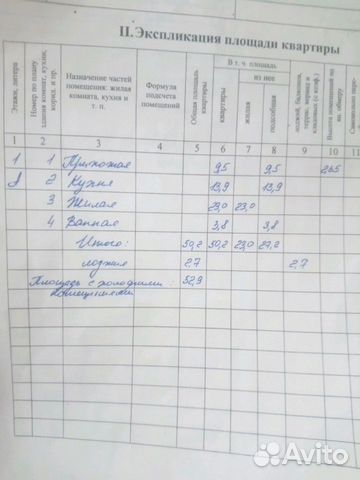 II. Экспликация площади квартиры
Этажи, литера
Номер по плану здания комнат, кухни, корид. и пр.
Назначение частей помещения: жилая комната, кухня и т. п.
Формула подсчета помещений
Общая площадь квартиры
В т. ч. площадь
из нее
квартиры
жилая
подсобная
лоджий, балконов, террас, веранд и кладовых (с коэф.)
Высота помещений по вн. обмеру
Самовольно
1 2 3 4 5 6 7 8 9 10 11
1 1 Прихожая 9,5 9,5 2,65
2 Кухня 13,9 13,9
3 Жилая 23,0 23,0
4 Ванная 3,8 3,8
Итого: 50,2 50,2 23,0 27,2
лоджия 2,7 2,7
Площадь с холодными : 52,9
помещениями
Avito